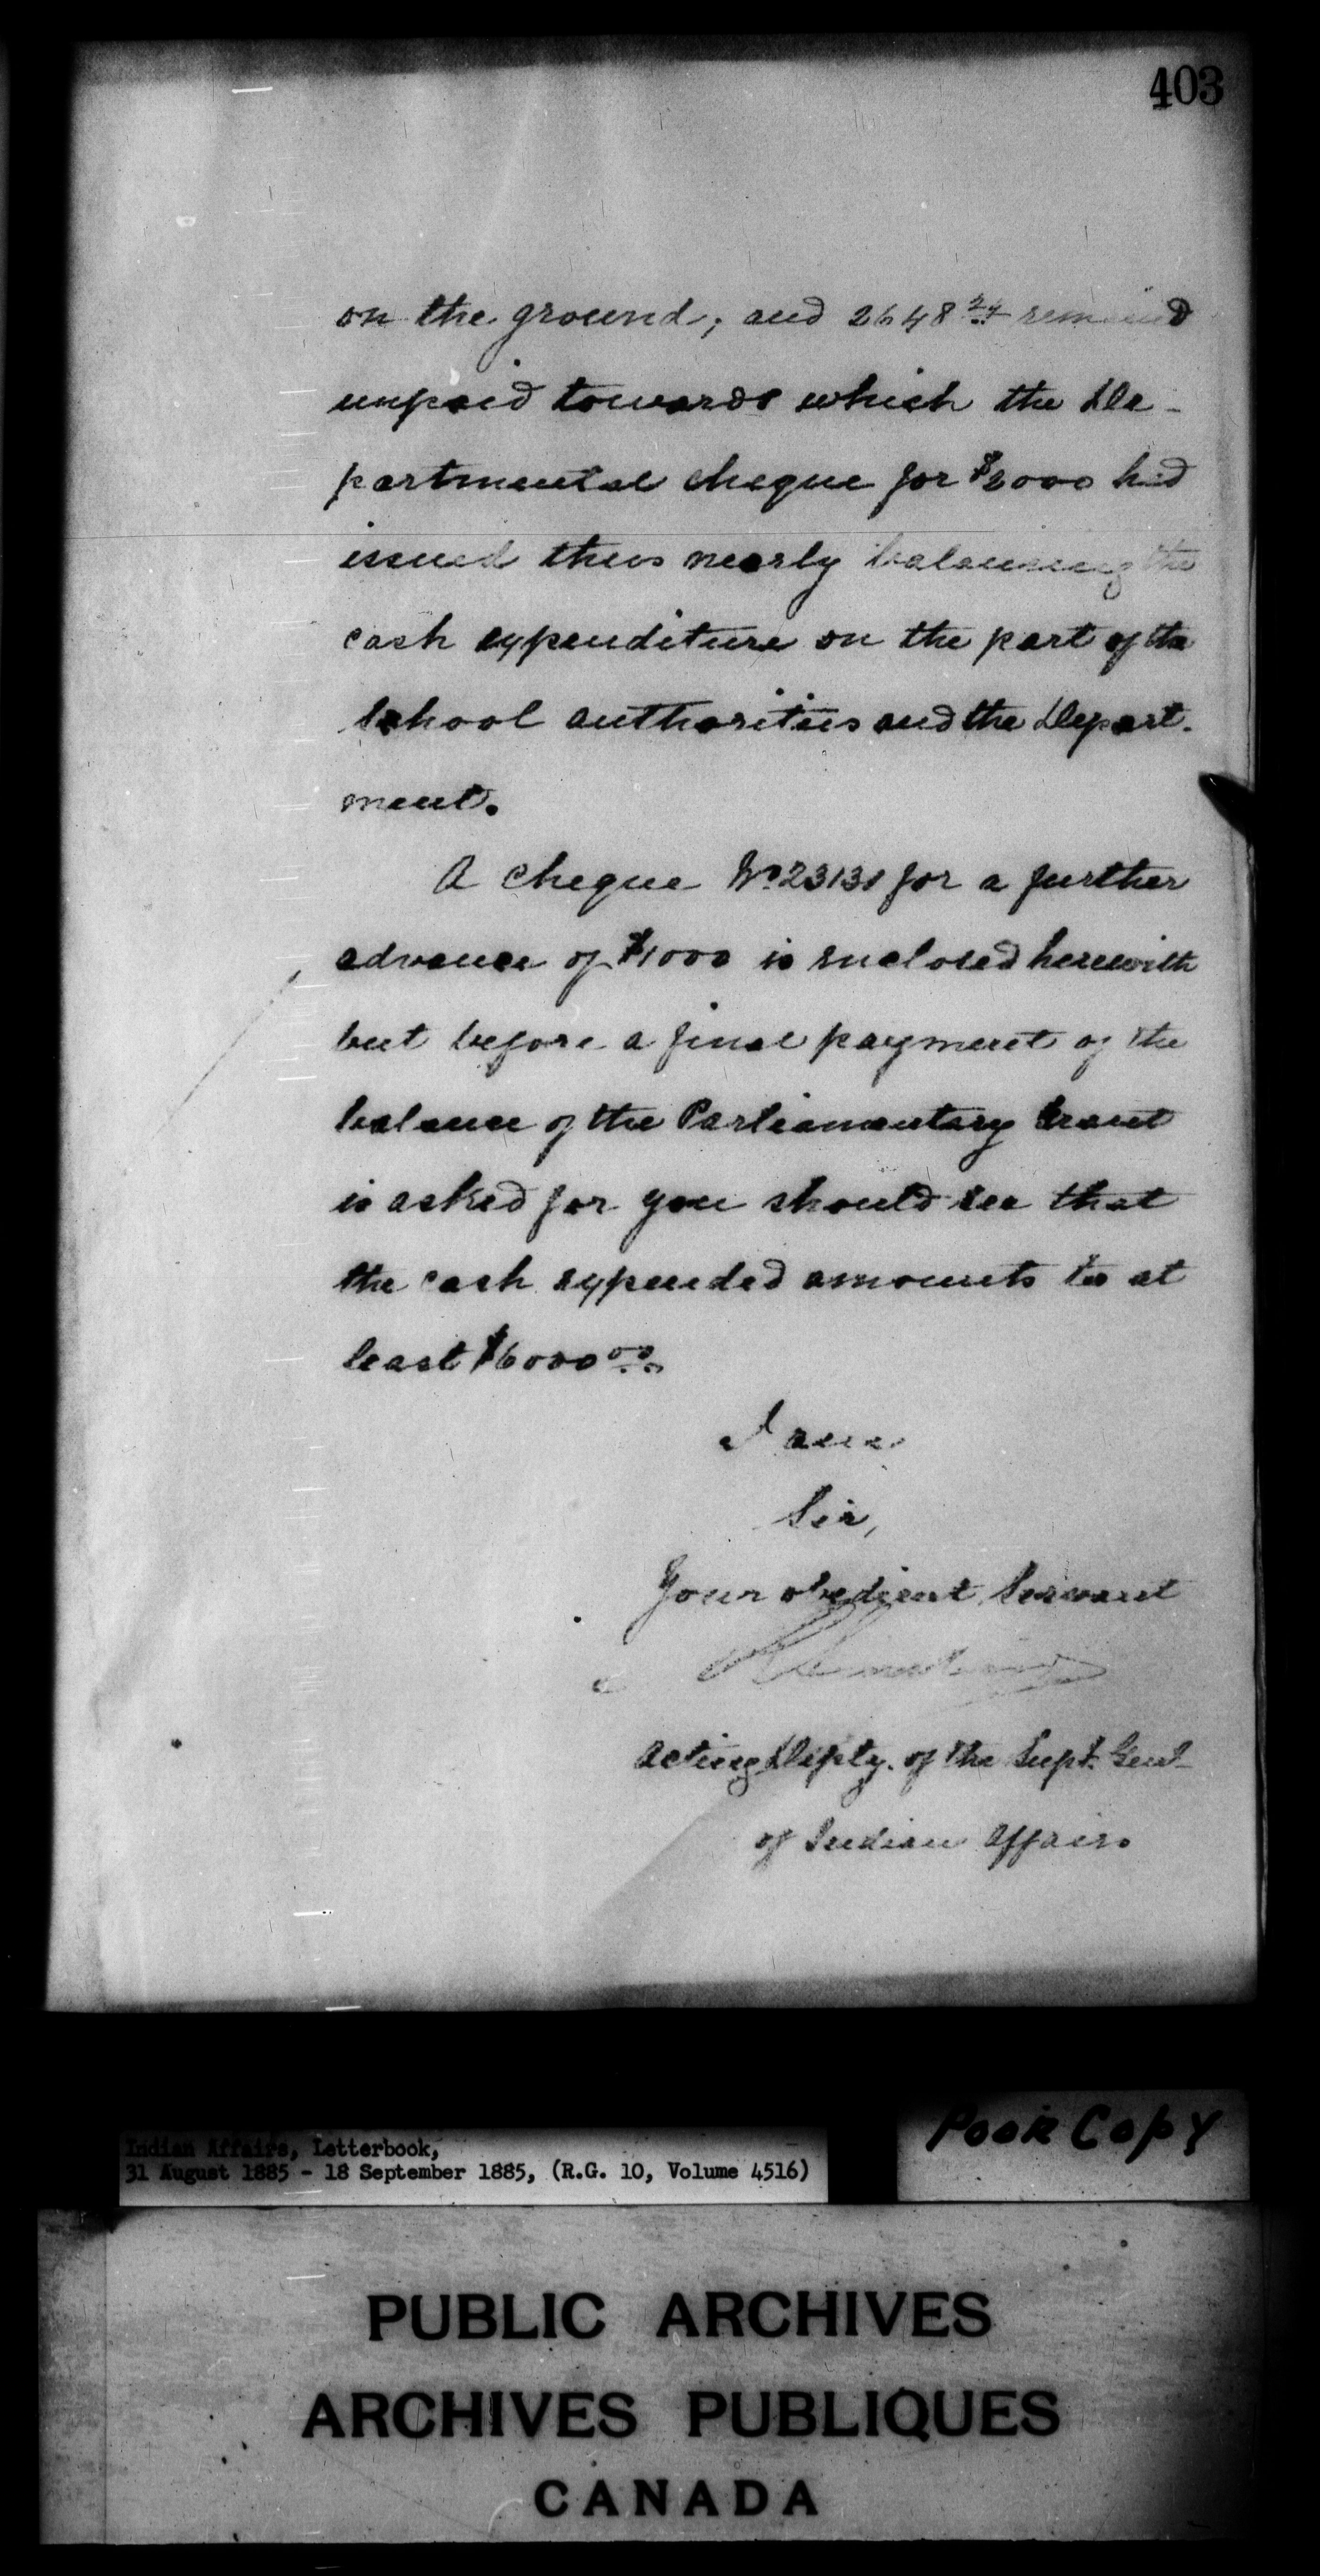 403
on the ground; and 2648 24 remained
unpaid towards which the De-
partmental cheque for $2000 had
issued thus nearly balancing the
cash expenditure on the part of the
School authorities and the Depart-
ment.
A cheque No 23131 for a further
advance of $1000 is enclosed herewith
but before a final payment of the
balance of the Parliamentary Grant
is asked for you should see that
the cash expended amounts to at
least $6000 00
I am
Sir,
Your obedient Servant
Acting Depty. of the Supt. Genl
of Indian Affairs
Poor Copy
Indian Affairs, Letterbook,
31 August 1885 - 18 September 1885, (R.G. 10, Volume 4516)
PUBLIC ARCHIVES
ARCHIVES PUBLIQUES
CANADA